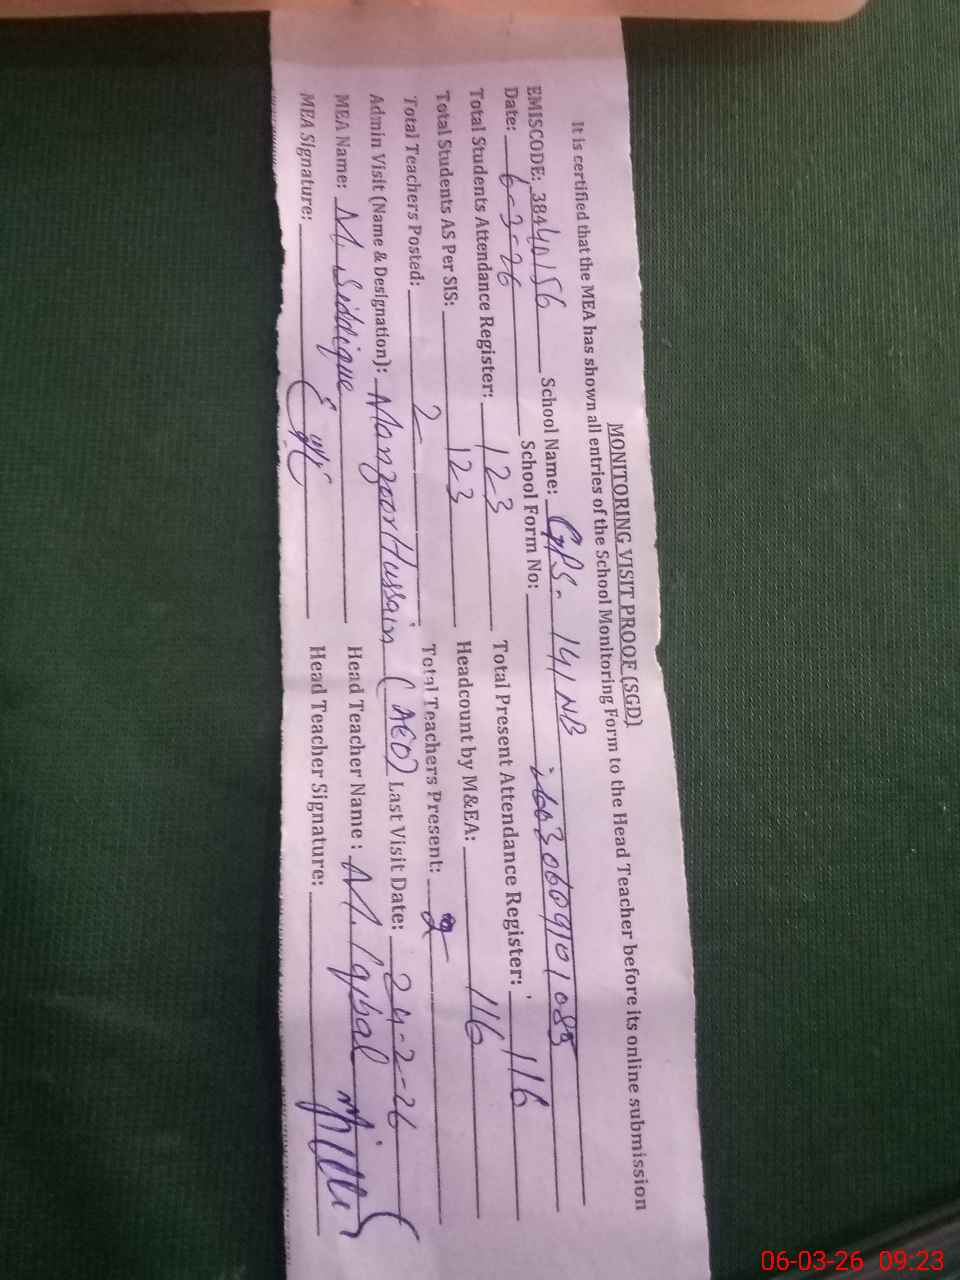 MONITORING VISIT PROOF (SGD)
It is certified that the MEA has shown all entries of the School Monitoring Form to the Head Teacher before its online submission
EMISCODE: 38440156 School Name: GPS. 141 NB
Date: 6-3-26 School Form No: 26030609101085
Total Students Attendance Register: 123 Total Present Attendance Register: 116
Total Students AS Per SIS: 123 Headcount by M&EA: 116
Total Teachers Posted: 2 Total Teachers Present: 2
Admin Visit (Name & Designation): Manzoor Hussain (AEO) Last Visit Date: 24-2-26
MEA Name: M. Siddique Head Teacher Name : M. Iqbal
MEA Signature: Head Teacher Signature:
06-03-26 09:23